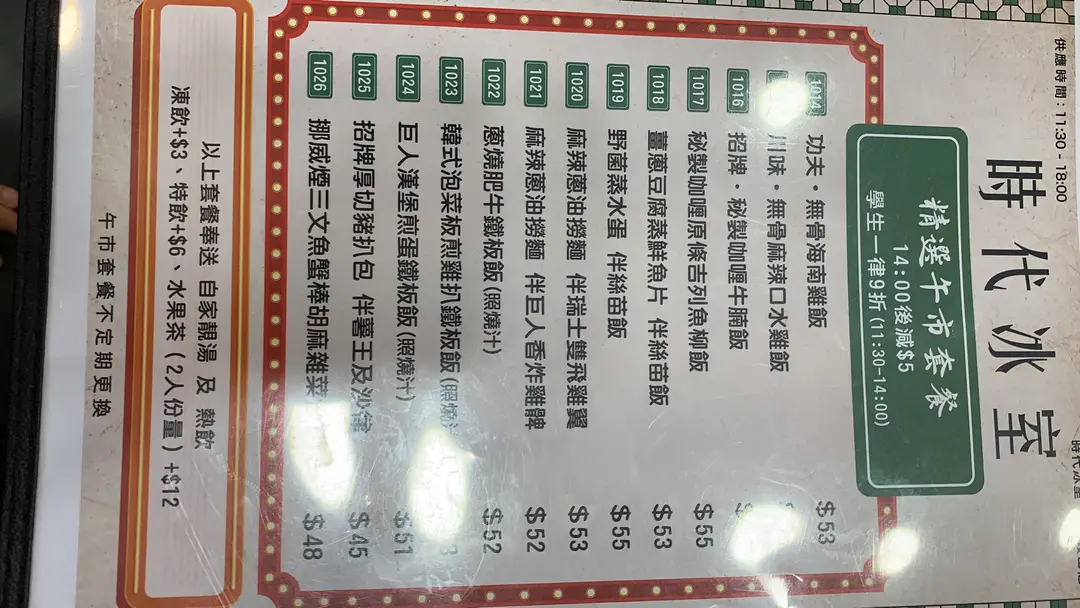 供應時間：11:30 - 18:00
時代冰室
時代冰室
精選午市套餐
14:00後減$5
學生一律9折(11:30-14:00)
1014 功夫・無骨海南雞飯 $53
川味・無骨麻辣口水雞飯
1016 招牌・秘製咖喱牛腩飯
1017 秘製咖喱原條吉列魚柳飯 $55
1018 薑蔥豆腐蒸鮮魚片 伴絲苗飯 $53
1019 野菌蒸水蛋 伴絲苗飯 $55
1020 麻辣蔥油撈麵 伴瑞士雙飛雞翼 $53
1021 麻辣蔥油撈麵 伴巨人香炸雞髀 $52
1022 蔥燒肥牛鐵板飯(照燒汁) $52
1023 韓式泡菜板煎雞扒鐵板飯(照燒
1024 巨人漢堡煎蛋鐵板飯(照燒汁) $51
1025 招牌厚切豬扒包 伴薯王及沙律 $45
1026 挪威煙三文魚蟹棒胡麻雜菜 $48
以上套餐奉送 自家靚湯 及 熱飲
凍飲+$3、特飲+$6、水果茶(2人份量)+$12
午市套餐不定期更換